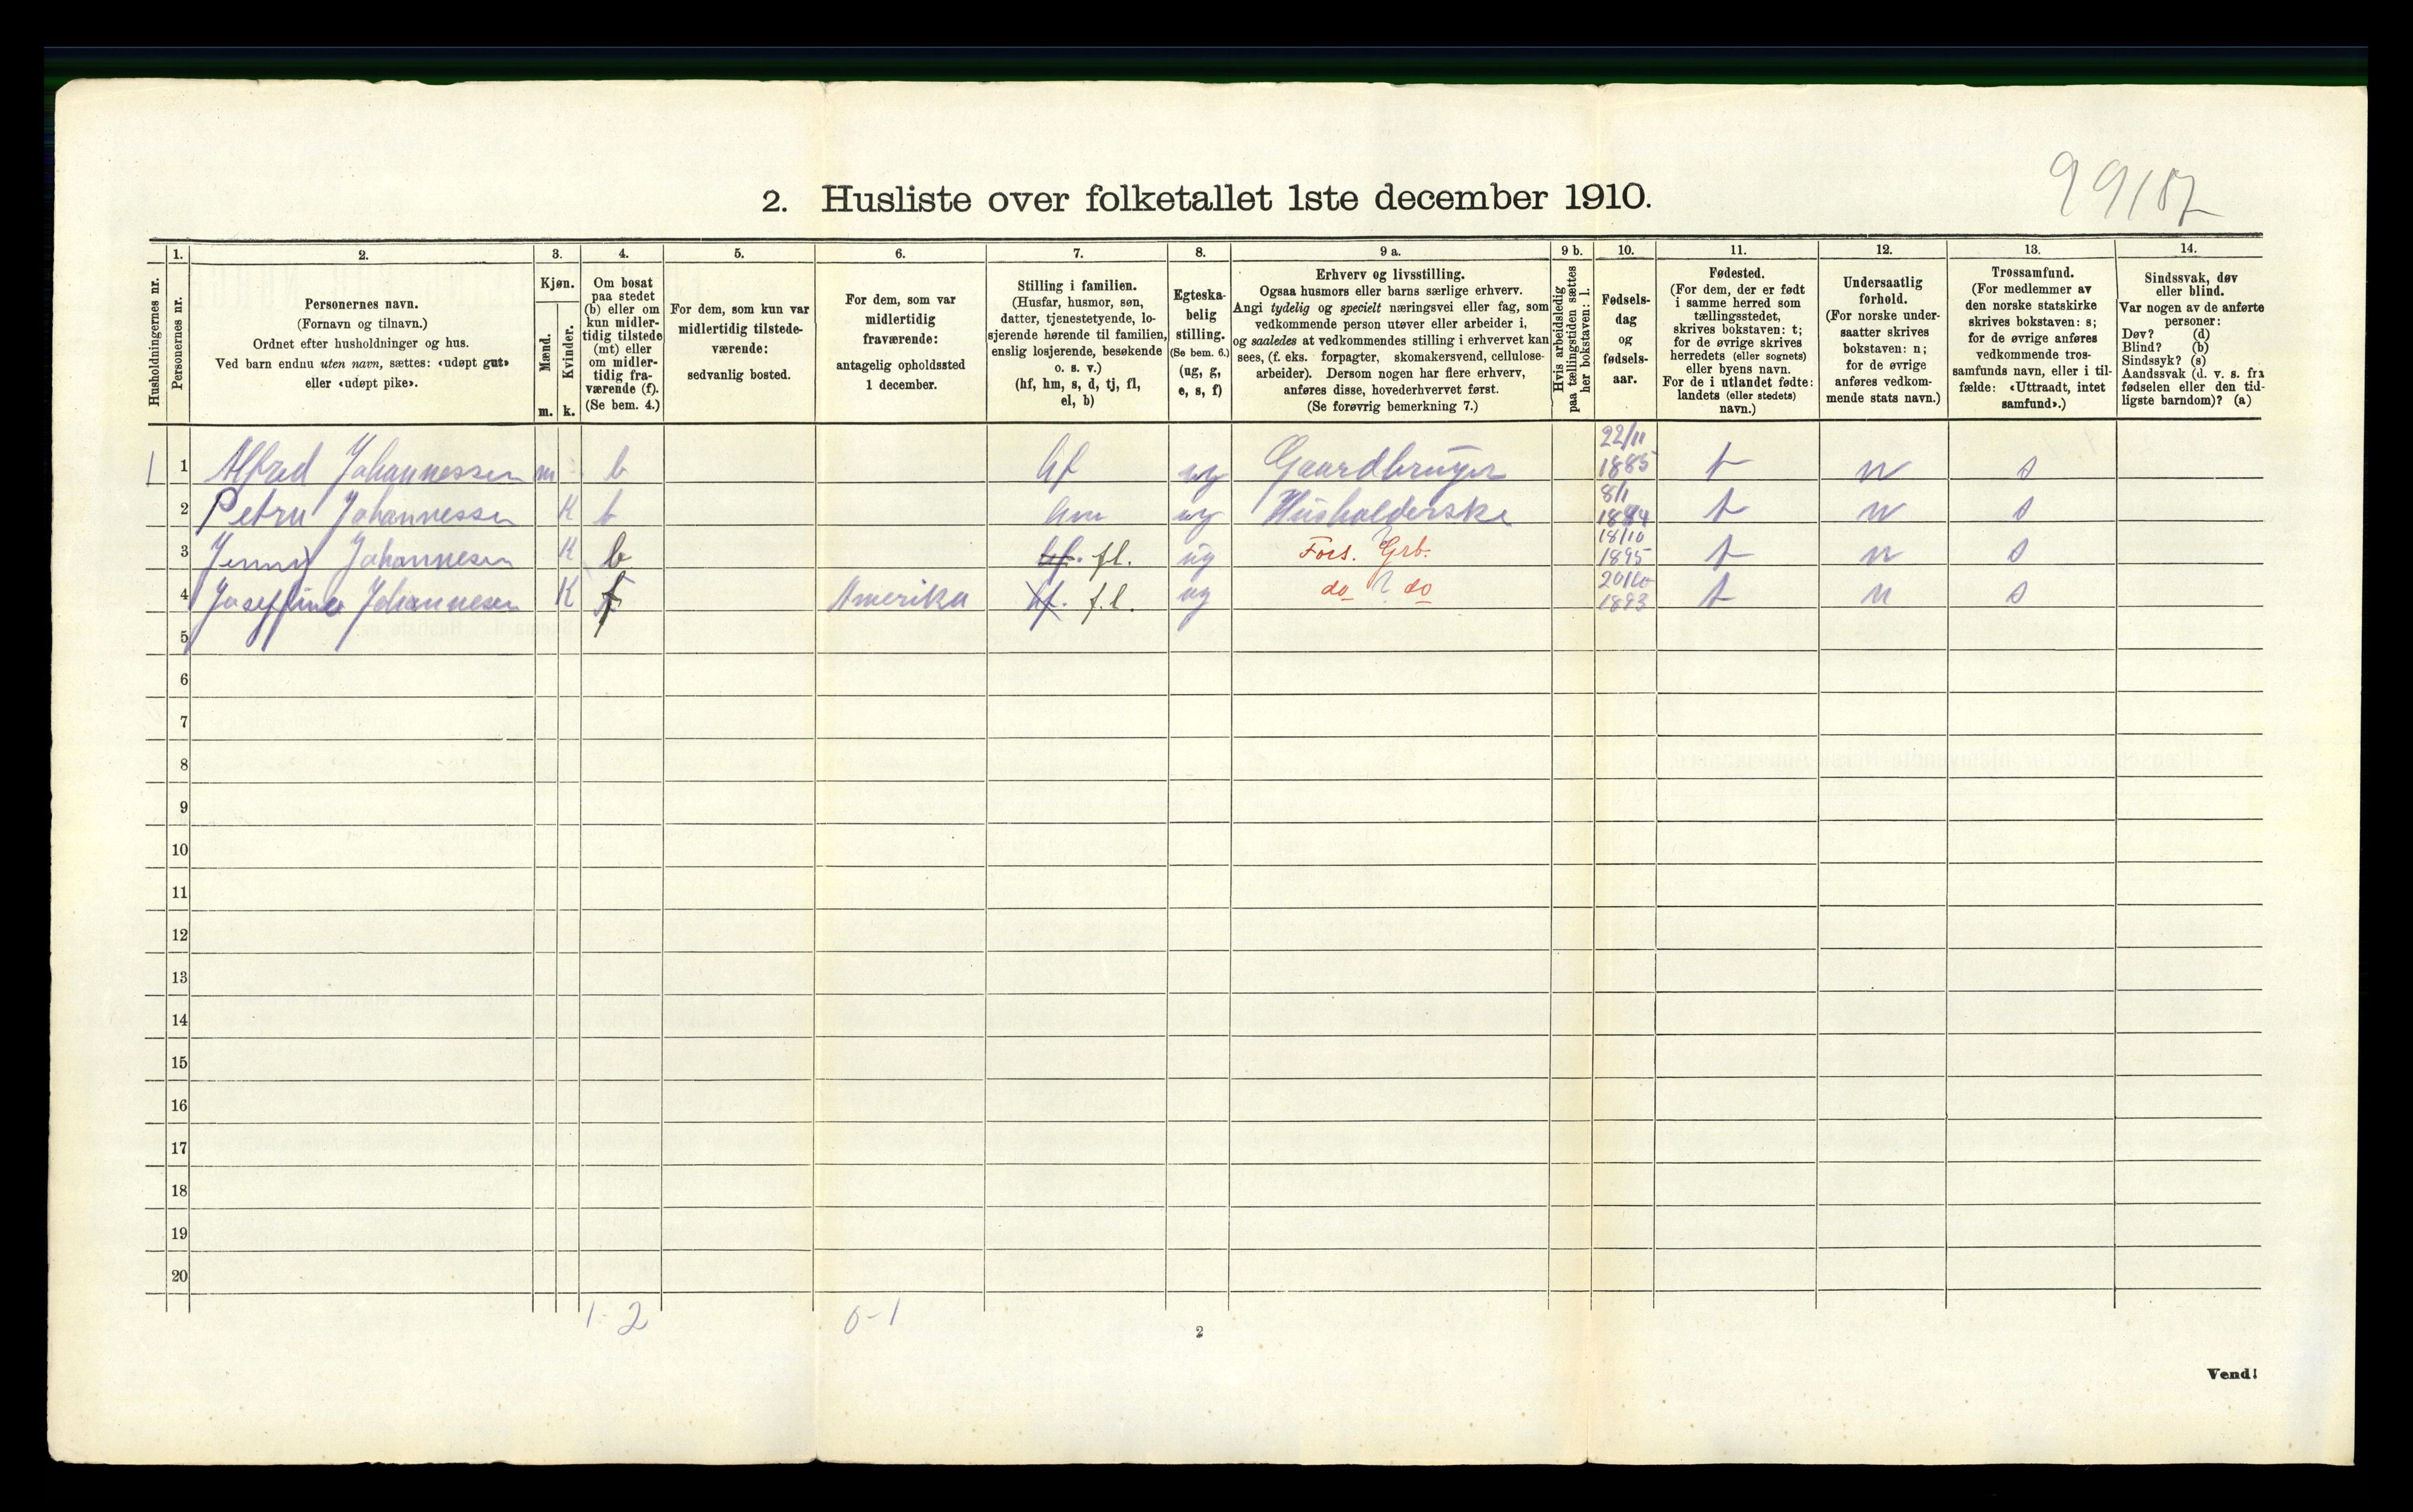 99/87
2. Husliste over folketallet 1ste december 1910.
Husholdningernes nr.
1.
Personernes nr.
2.
Personernes navn.
(Fornavn og tilnavn.)
Ordnet efter husholdninger og hus.
Ved barn endnu uten navn, sættes: «udøpt gut»
eller «udøpt pike».
3.
Kjøn.
Mænd.
Kvinder.
m. k.
4.
Om bosat
paa stedet
(b) eller om
kun midler-
tidig tilstede
(mt) eller
om midler-
tidig fra-
værende (f).
(Se bem. 4.)
5.
For dem, som kun var
midlertidig tilstede-
værende:
sedvanlig bosted.
6.
For dem, som var
midlertidig
fraværende:
antagelig opholdssted
1 december.
7.
Stilling i familien.
(Husfar, husmor, søn,
datter, tjenestetyende, lo-
sjerende hørende til familien,
enslig losjerende, besøkende
o. s. v.)
(hf, hm, s, d, tj, fl,
el, b)
8.
Egteska-
belig
stilling.
(Se bem. 6.)
(ug, g,
e, s, f)
9 a.
Erhverv og livsstilling.
Ogsaa husmors eller barns særlige erhverv.
Angi tydelig og specielt næringsvei eller fag, som
vedkommende person utøver eller arbeider i,
og saaledes at vedkommendes stilling i erhvervet kan
sees, (f. eks. forpagter, skomakersvend, cellulose-
arbeider). Dersom nogen har flere erhverv,
anføres disse, hovederhvervet først.
(Se forøvrig bemerkning 7.)
9 b.
Hvis arbeidsledig
paa tællingstiden sættes
her bokstaven: l.
10.
Fødsels-
dag
og
fødsels-
aar.
11.
Fødested.
(For dem, der er født
i samme herred som
tællingsstedet,
skrives bokstaven: t;
for de øvrige skrives
herredets (eller sognets)
eller byens navn.
For de i utlandet fødte:
landets (eller stedets)
navn.)
12.
Undersaatlig
forhold.
(For norske under-
saatter skrives
bokstaven: n;
for de øvrige
anføres vedkom-
mende stats navn.)
13.
Trossamfund.
(For medlemmer av
den norske statskirke
skrives bokstaven: s;
for de øvrige anføres
vedkommende tros-
samfunds navn, eller i til-
fælde: «Uttraadt, intet
samfund».)
14.
Sindssvak, døv
eller blind.
Var nogen av de anførte
personer:
Døv? (d)
Blind? (b)
Sindssyk? (s)
Aandssvak (d. v. s. fra
fødselen eller den tid-
ligste barndom)? (a)
1 1 Alfred Johannessen m b hf ug Gaardbruger 22/11 1885 t n s
2 Petra Johannessen K b hm ug Husholderske 8/1 1884 t n s
3 Jenny Johannesen K b hf. fl. ug Fors. Grb. 18/10 1895 t n s
4 Joseffine Johannesen K f Amerika hf. f.l. ug do do 20/10 1893 t n s
5
6
7
8
9
10
11
12
13
14
15
16
17
18
19
20
1-2 0-1
2
Vend!